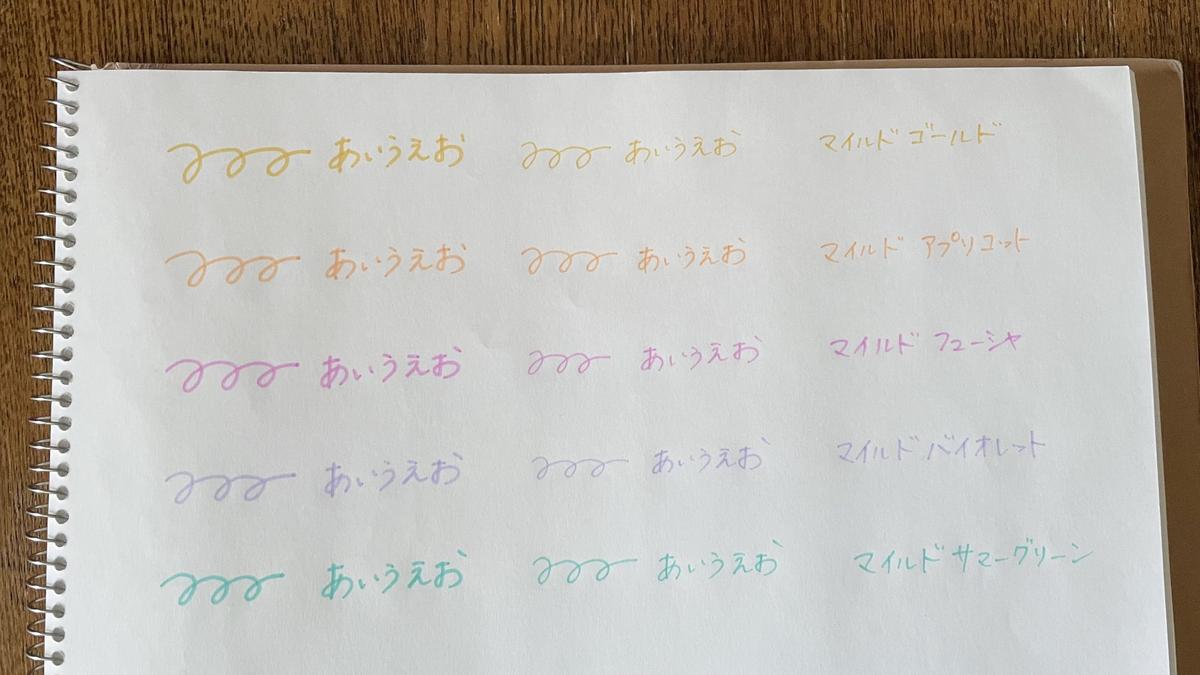 あいうえお あいうえお マイルド ゴールド
あいうえお あいうえお マイルド アプリコット
あいうえお あいうえお マイルド フューシャ
あいうえお あいうえお マイルド バイオレット
あいうえお あいうえお マイルド サマーグリーン